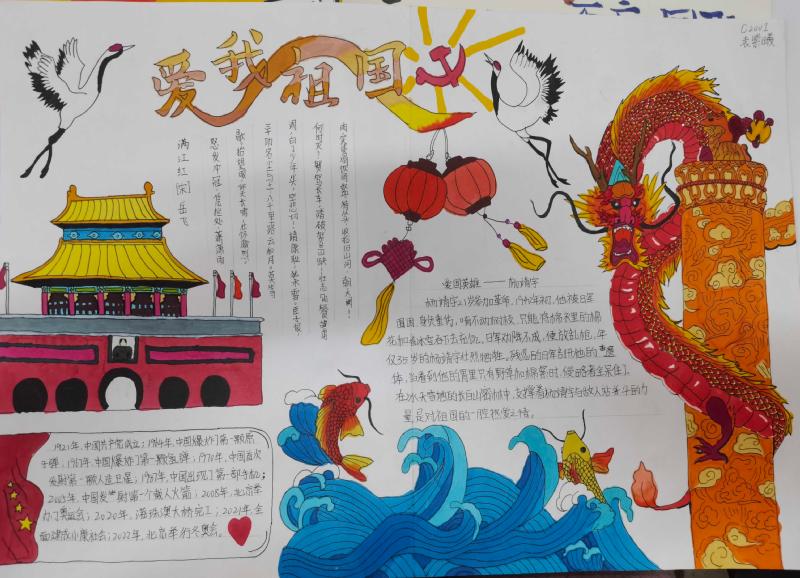 爱我祖国
满江红 [宋] 岳飞
怒发冲冠,凭栏处、潇潇雨
歇。抬望眼,仰天长啸,壮怀激烈。
三十功名尘与土,八千里路云和月。莫等
闲,白了少年头,空悲切!靖康耻,犹未雪。臣子恨,
何时灭!驾长车,踏破贺兰山缺。壮志饥餐胡虏
肉,笑谈渴饮匈奴血。待从头、收拾旧山河,朝天阙!
爱国英雄——杨靖宇
杨靖宇21岁参加革命,1940年初,他被日军
围困,身负重伤,啃不动树皮,只能将棉衣里的棉
花和着冰雪吞下去充饥,日军劝降不成,便放乱枪,年
仅35岁的杨靖宇壮烈牺牲,残忍的日军剖开他的遗
体,当看到他的胃里只有野草和棉絮时,侵略者全呆住了。
在冰天雪地的长白山密林中,支撑着杨靖宇与敌人战斗的力
量是对祖国的一腔热爱之情。
1921年,中国共产党成立;1964年,中国爆炸了第一颗原
子弹;1967年,中国爆炸了第一颗氢弹;1970年,中国首次
发射第一颗人造卫星;1987年,中国出现了第一部手机;
2003年,中国发射第一个载人火箭;2008年,北京举
办了奥运会;2020年,港珠澳大桥完工;2021年,全
面建成小康社会;2022年,北京举行冬奥会。